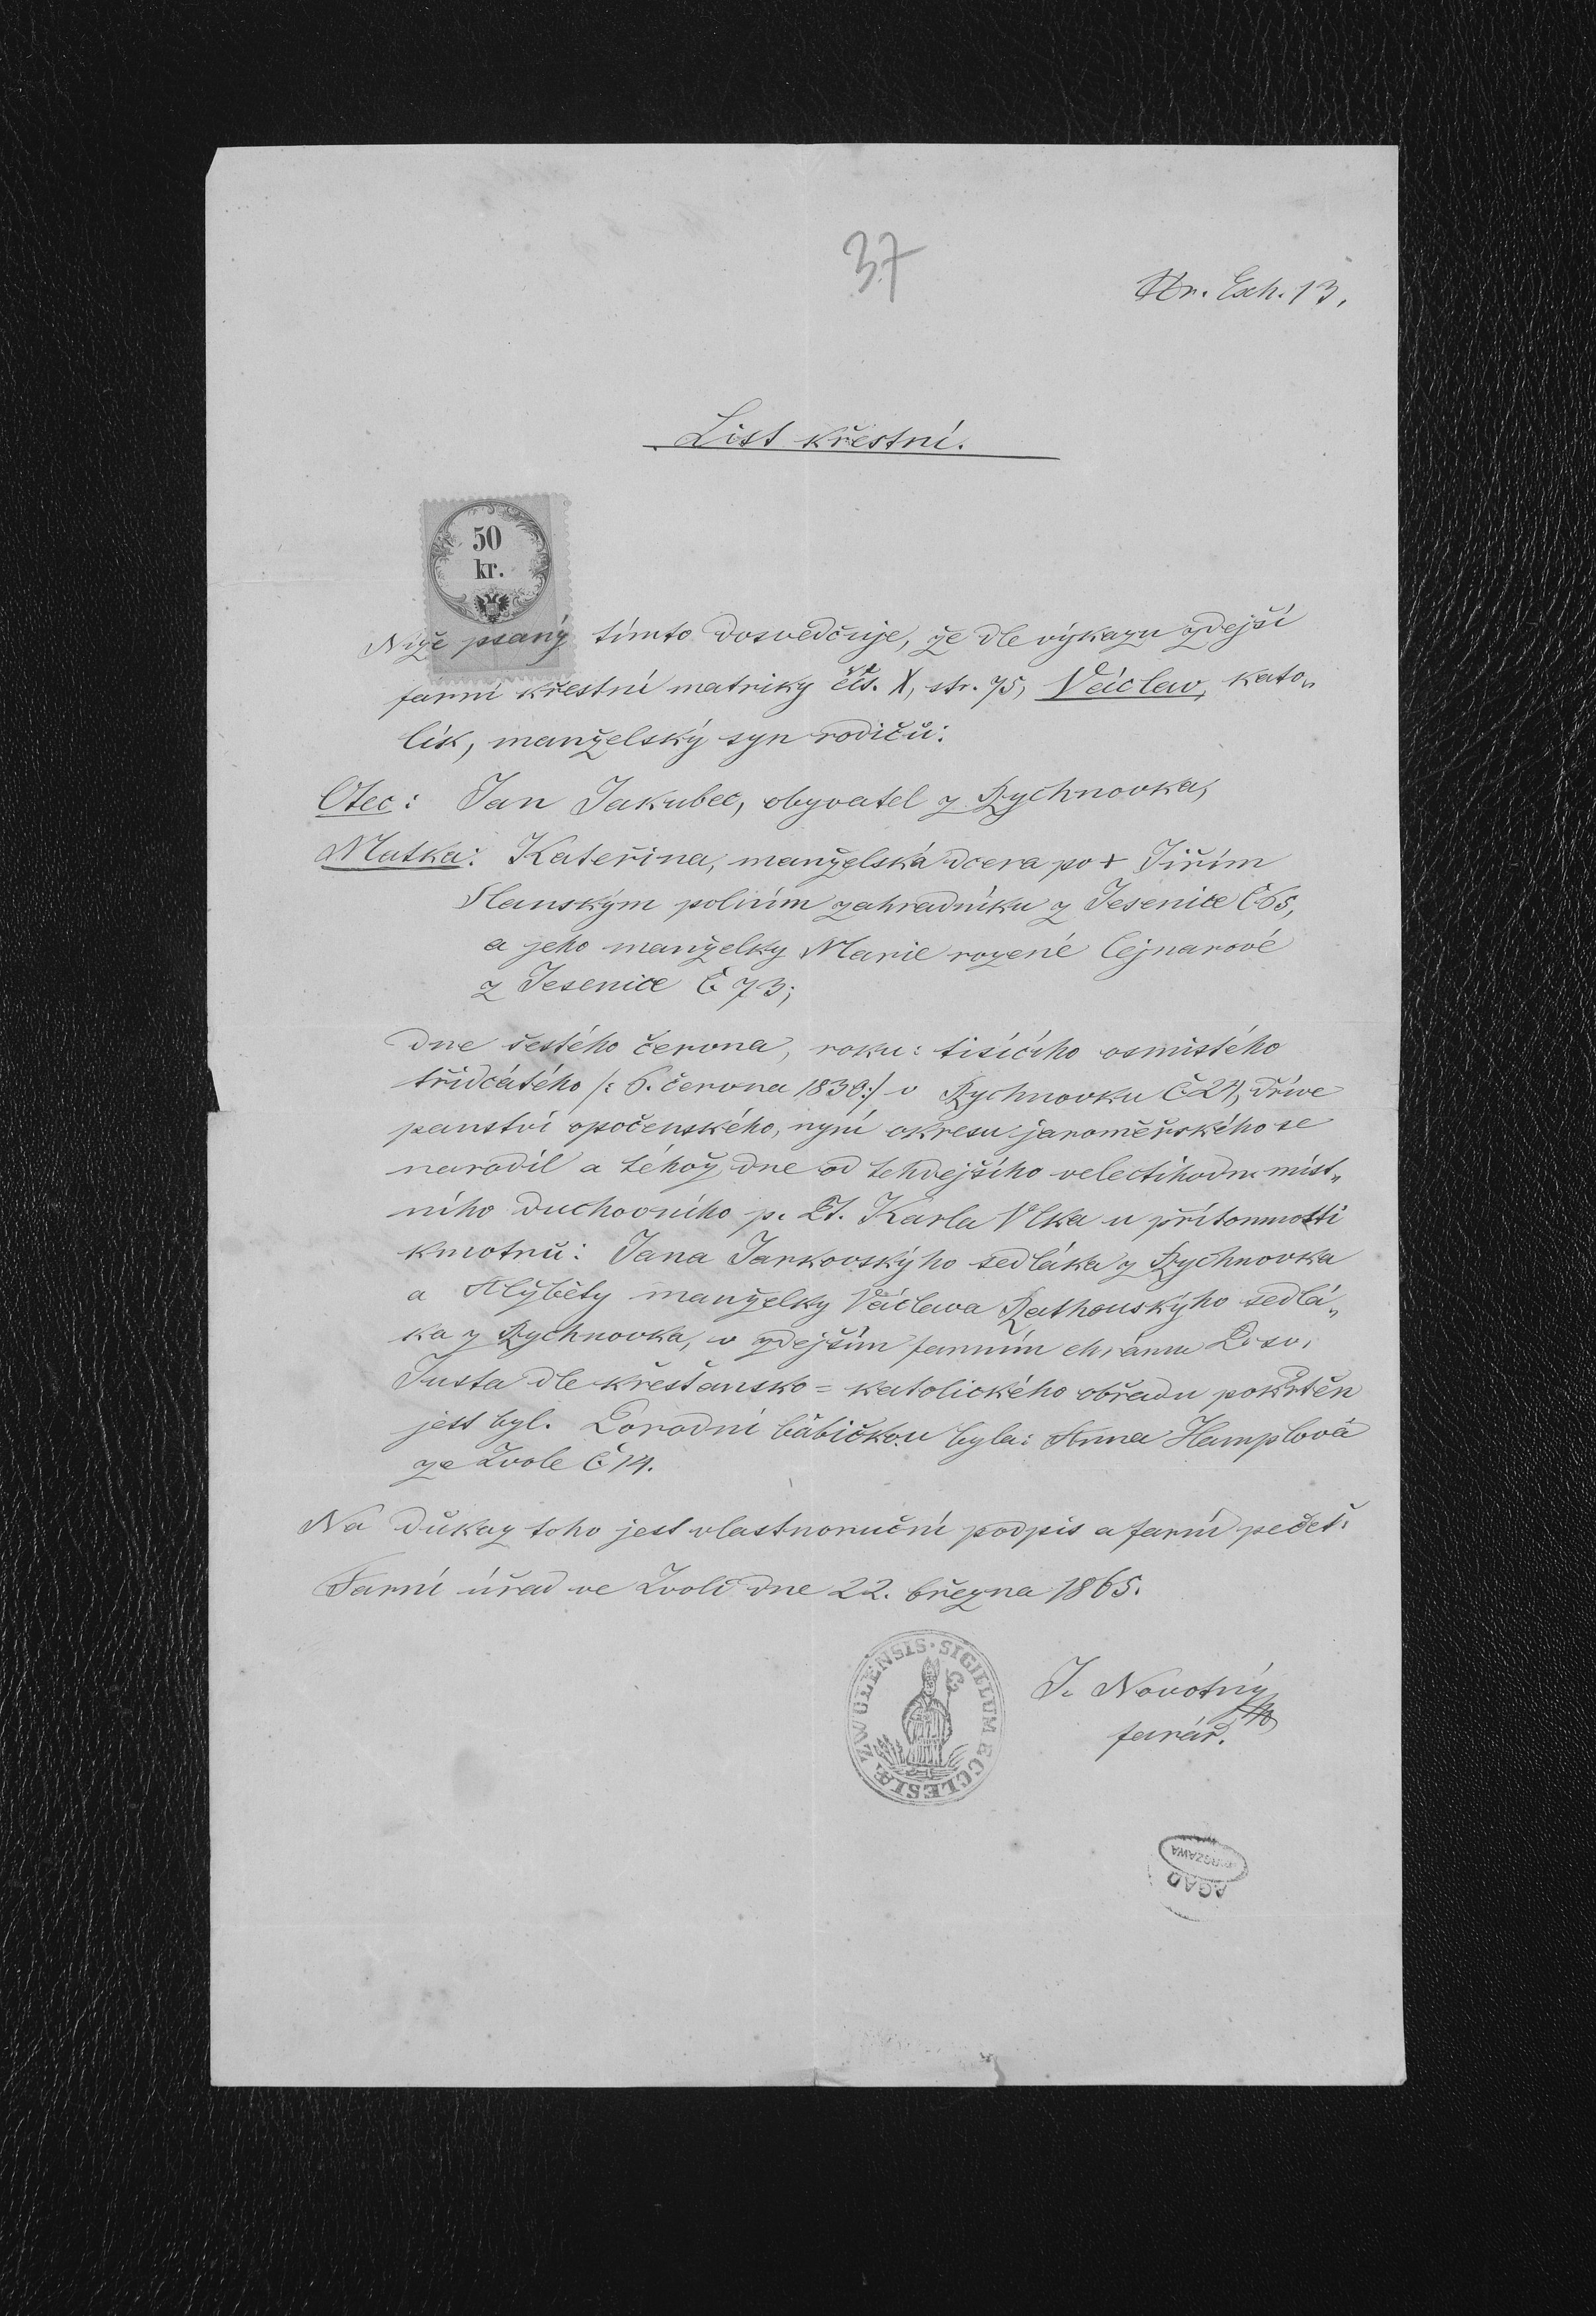 37
Nr. Exh. 13.
List křestní.
50
kr.
Níže psaný tímto dosvědčuje, že dle výkazu zdejší
farní křestní matriky čís. X, str. 75, Václav, kato„
lík, manželský syn rodičů:
Otec: Jan Jakubec, obyvatel z Rychnovka,
Matka: Kateřina, manželská dcera po + Jiřím
Slanským polním zahradníku z Jesenice Č 65,
a jeho manželky Marie rozené Cejnarové
z Jesenice Č 73;
dne šestého června, roku: tisícího osmistého
třidcátého /: 6. června 1830 :/ v Rychnovku Č 24, dříve
panství opočenského, nyní okresu jaroměřského se
narodil a téhož dne od tehdejšího velectihodn. míst„
ního duchovního p. Karla Vlka u přítomnosti
kmotrů: Jana Jarkovskýho sedláka z Rychnovka
a Alžběty manželky Václava Rathouskýho sedlá„
ka z Rychnovka, v zdejším farním chrámu P. sv.
Justa dle křesťansko = katolického obřadu pokřtěn
jest byl. Porodní bábičkou byla: Anna Hamplová
ze Zvole Č 14.
Na důkaz toho jest vlastnoruční podpis a farní pečeť.
Farní úřad ve Zvoli dne 22. března 1865.
SIGILLUM ECCLESIÆ ZWOLENSIS
J. Novotný
farář.
AGAD
WARSZAWA